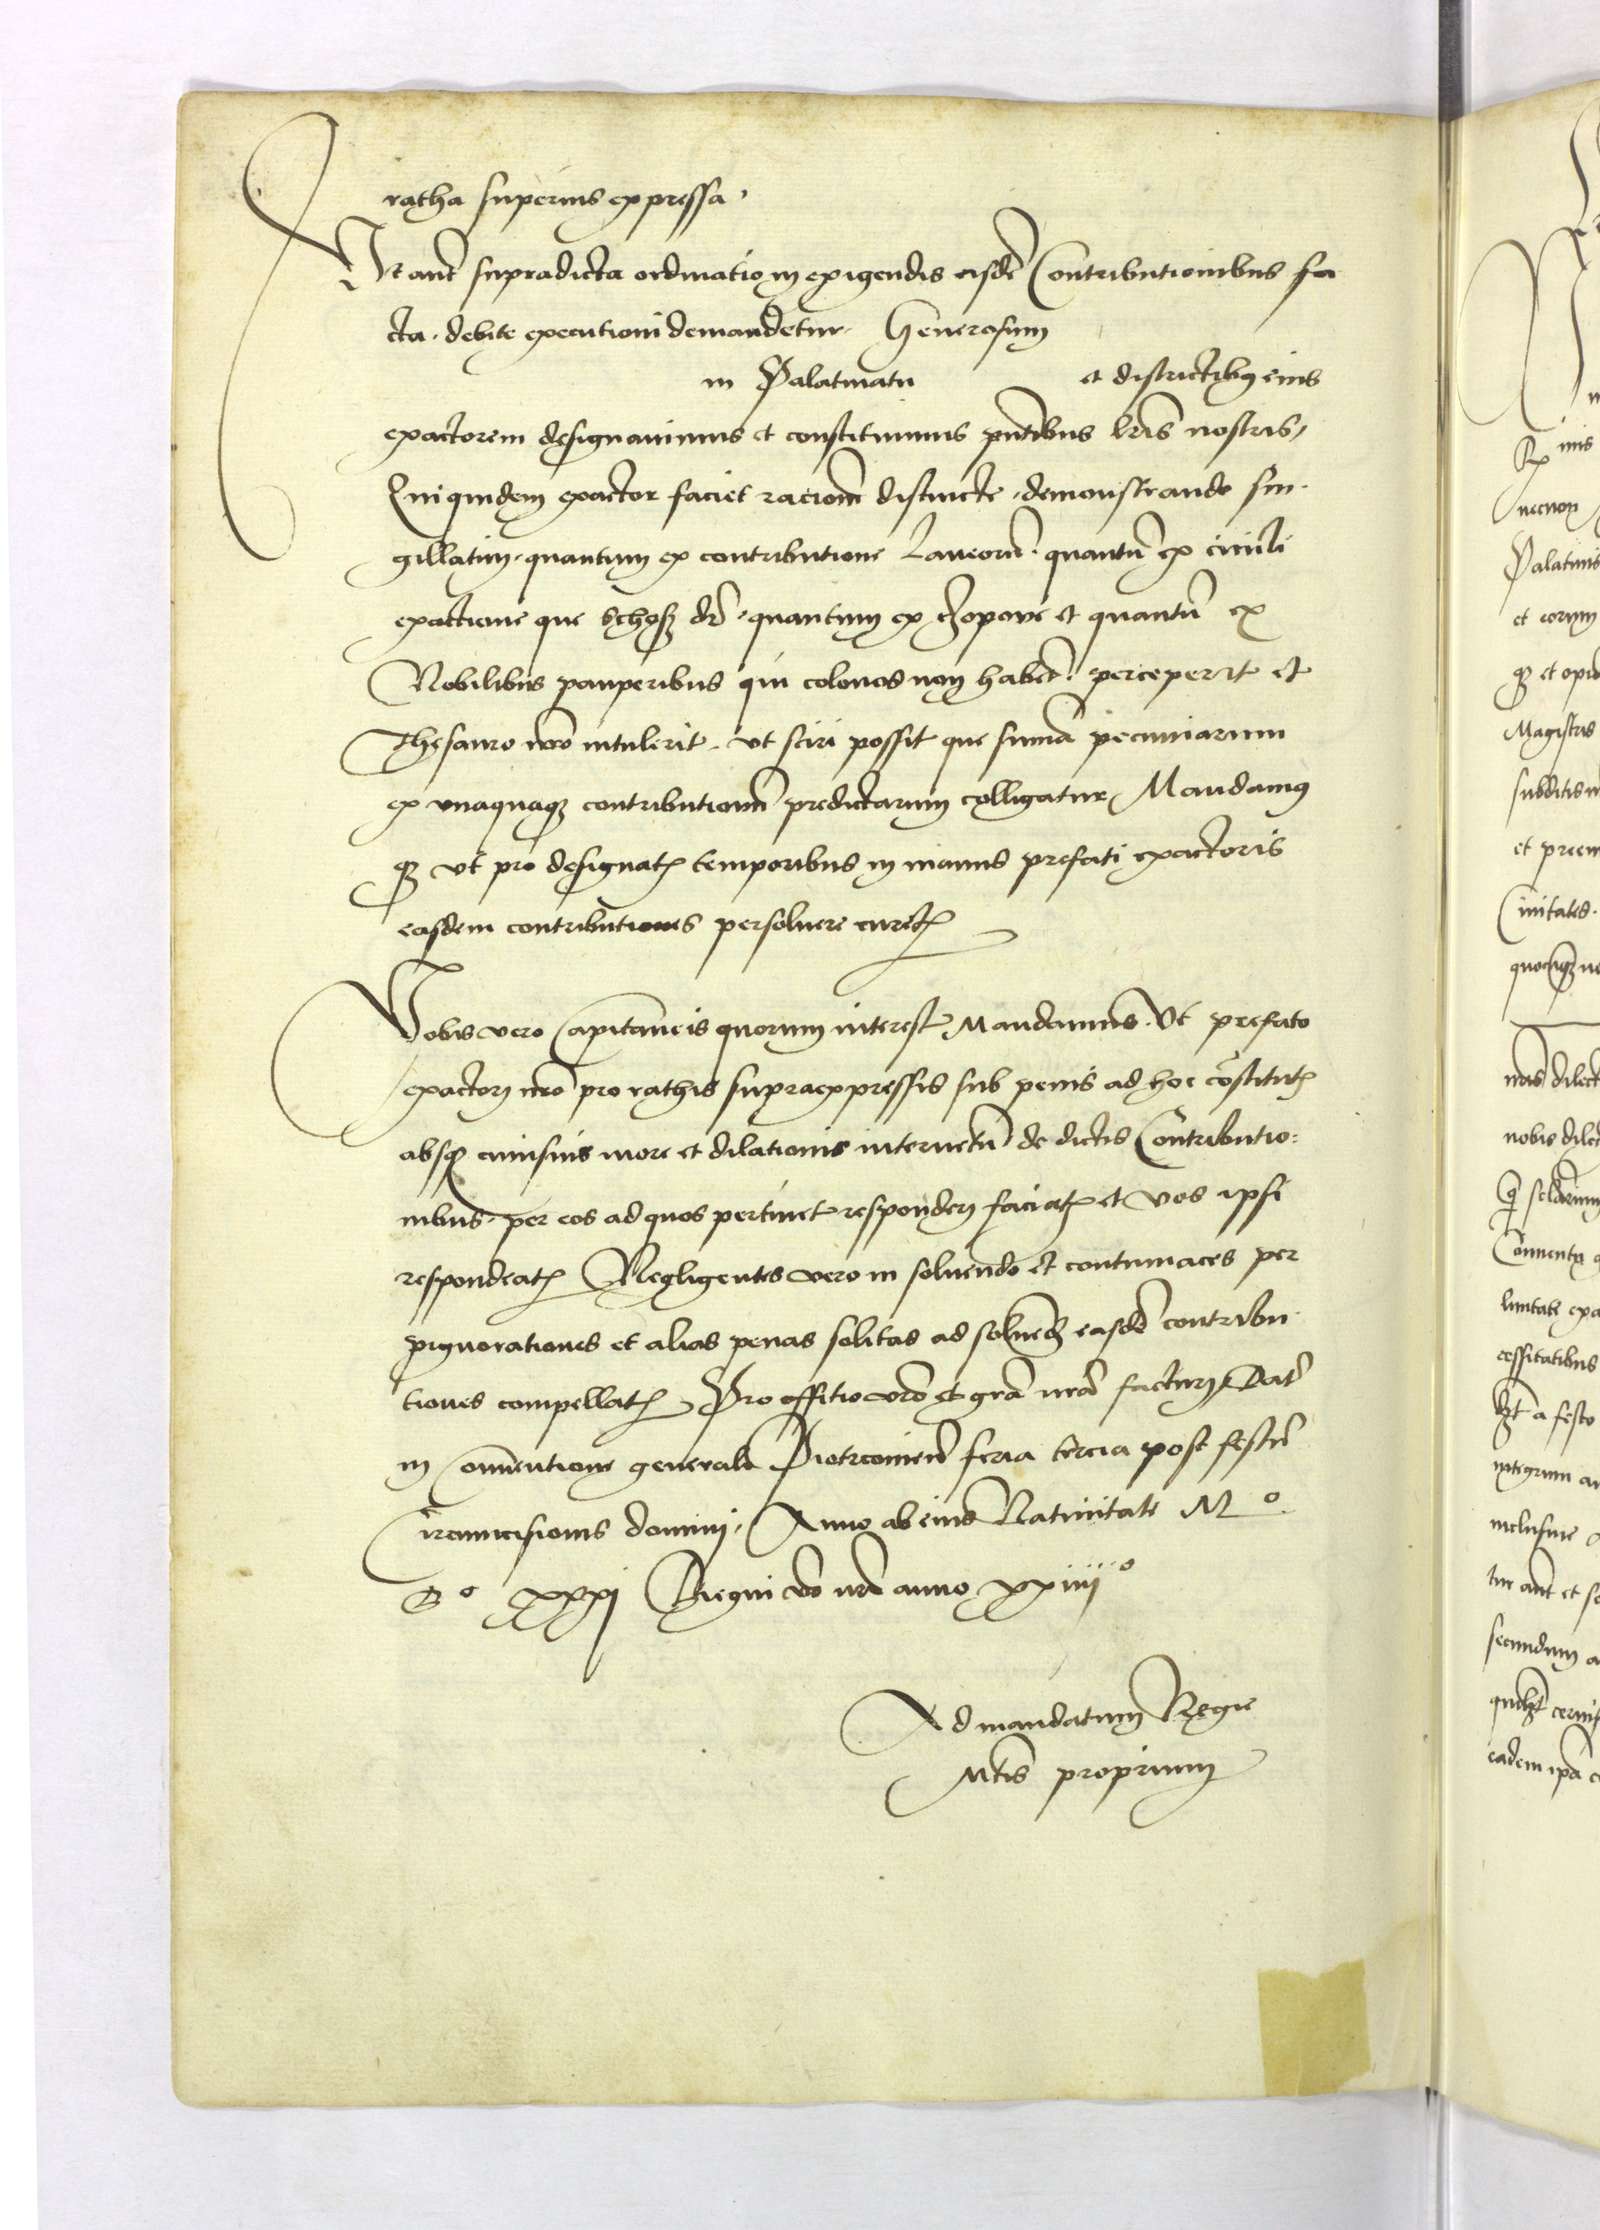 ratha superius expressa.
Ut aut supradicta ordinatio in exigendis eisdē Contributionibus fa
cta. debite executioni demandetur. Generosum
in Palatinatu et districtibus eius
exactorem designavimus et constituimus pntibus lris nostris,
Qui quidem exactor faciet racionē distincte, demonstrando sin-
gillatim, quantum ex contributione Laneorū. quantū ex civili
exactione que schosz dr̄, quantum ex czopowe et quantū ex
Nobilibus pauperibus qui colonos non habēt. perceperit et
Thesauro nro intulerit. ut sciri possit que summa pecuniarum
ex unaquaqz contributionū predictarum colligatur, Mandamus
qz ut pro designatis temporibus in manus prefati exactoris
easdem contributiones persolvere curetis
Vobis vero Capitaneis quorum interest Mandamus. Ut prefato
exactori nro pro rathis supraexpressis sub penis ad hoc cōstitutis
absqz cuiusvis more et dilationis interventū de dictis Contributio=
nibus. per eos ad quos pertinet responderi faciatis et vos ipsi
respondeatis Negligentes vero in solvendo et contumaces per
pignorationes et alias penas solitas ad solvend easdē contribu
tiones compellatis Pro officio vro et gra nra facturi, Dat
in Conventione generali Piotrcovien feria tercia post festū
Circumcisionis domini, Anno ab eius Nativitate Mº
Dº xxxj Regni vo nri anno xxiiijº
Ad mandatum Regie
Mtis proprium
nris
necnon
Palatinis
et eorum
qz et
Magistris
subditis
et
Civitates.
nras dilect
nobis
cessitatibus
a festo
integrum
inclusive
tur aut et
secundum
eadem ipa